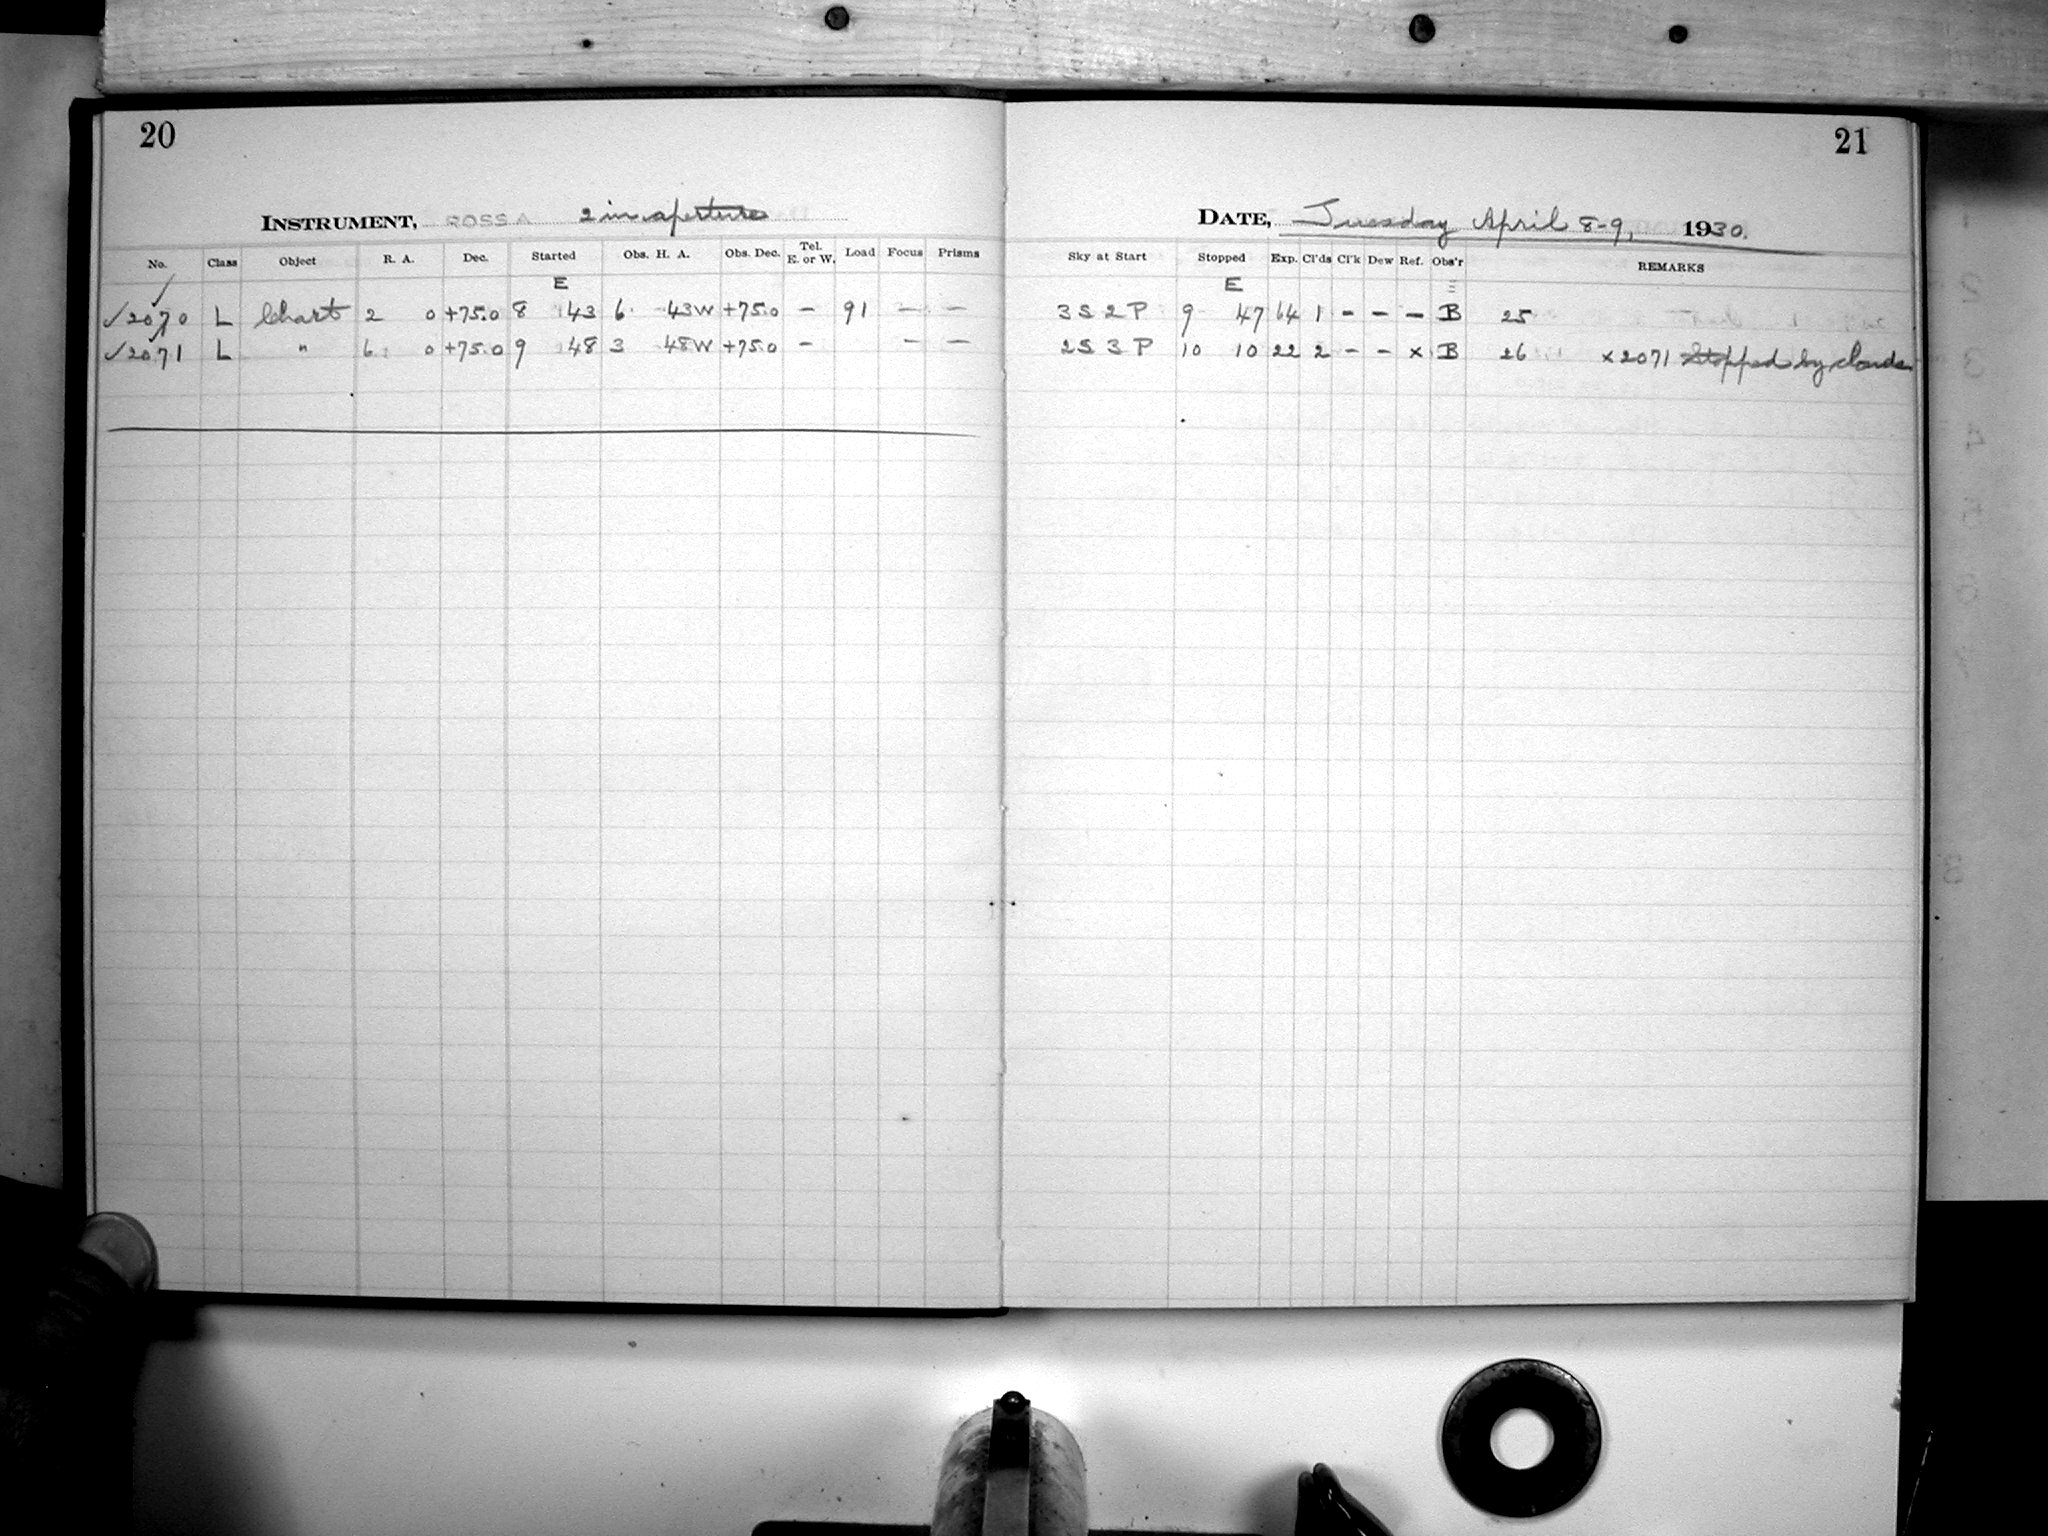 20
INSTRUMENT, ROSS A 2 in aperture
No. Class Object R. A. Dec. Started Obs. H. A. Obs. Dec. Tel. E. or W. Load Focus Prisms
E
✓2070 L Chart 2 0 +75.0 8 43 6 43W +75.0 – 91 – –
✓2071 L " 6 0 +75.0 9 48 3 48W +75.0 – – –
21
DATE, Tuesday April 8-9, 1930.
Sky at Start Stopped Exp. Cl'ds Cl'k Dew Ref. Obs'r REMARKS
E
3 S 2 P 9 47 64 1 – – – B 25
2 S 3 P 10 10 22 2 – – x B 26 x 2071 Stopped by clouds